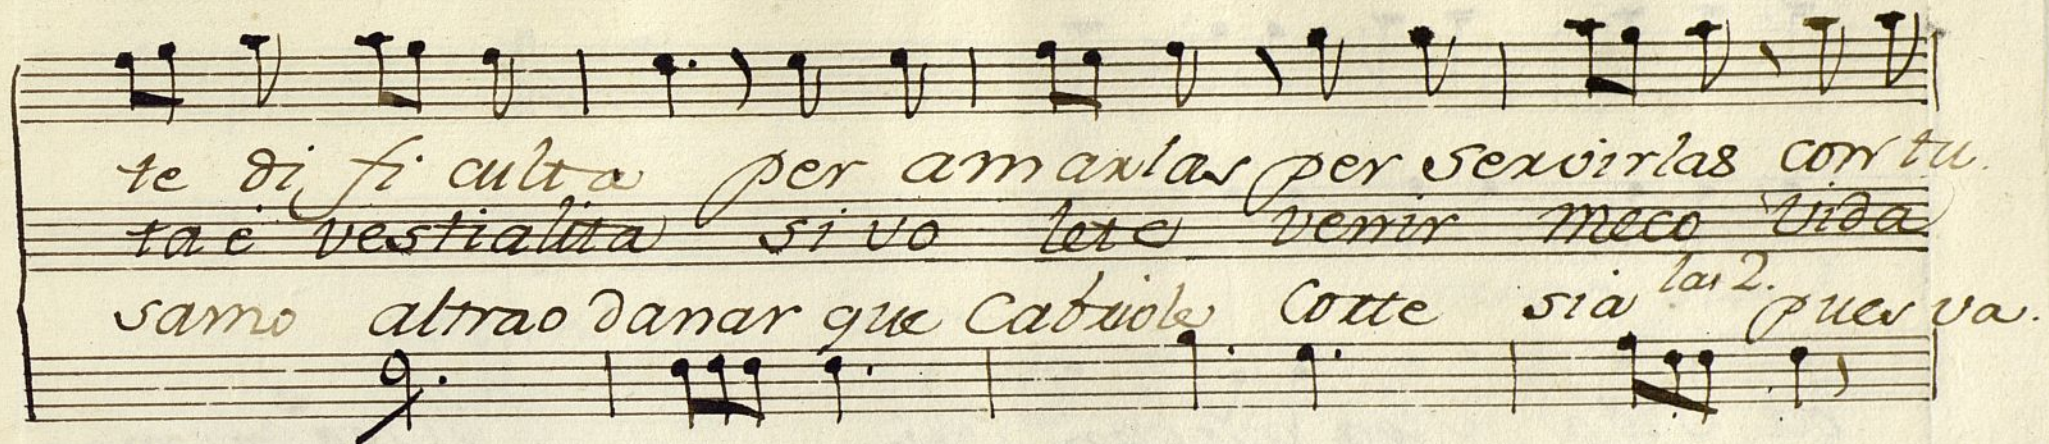 te di fi culta per amarlas per servirlas con tu.
ta é vestialita si vo lete venir meco vida
samo altrao danar que Cabriole Corte sia las 2. pues va.